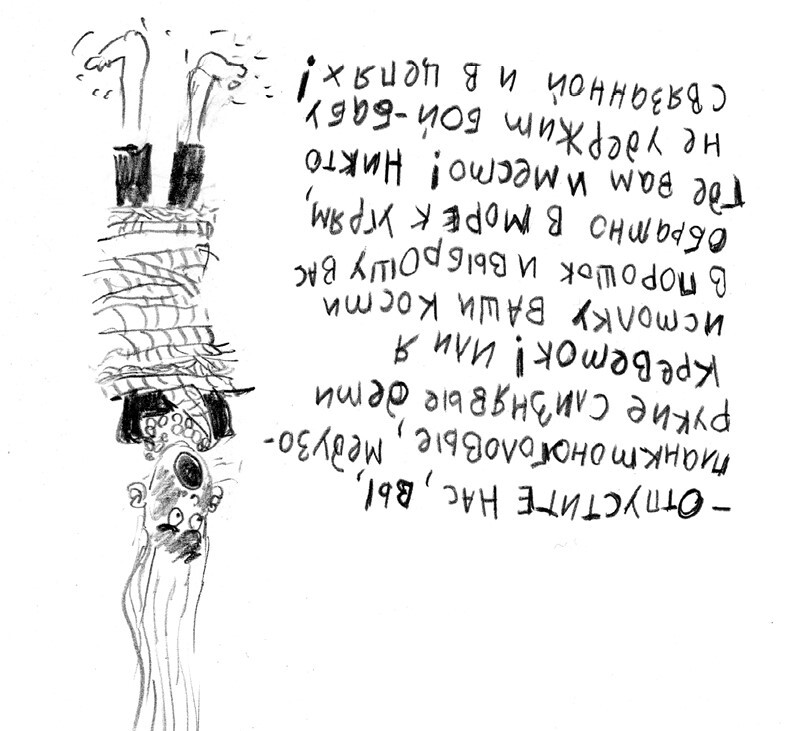 – Отпустите нас, вы,
планктоноголовые, медузо-
рукие слизнявые дети
креветок! Или я
истолку ваши кости
в порошок и выброшу вас
обратно в море к угрям,
где вам и место! Никто
не удержит бой-бабу
связанной и в цепях!